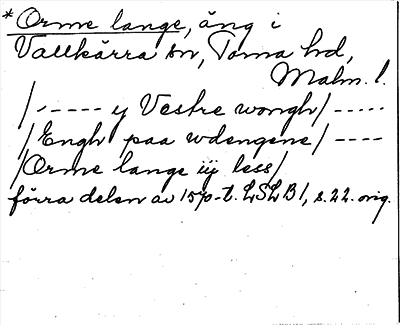 * Orme lange, äng i
Vallkärra sn, Torna hd,
Malm. l.
/ ----- y Vestre wongh/ -----
/Engh paa wdengene/ ----
/Orme lange iij less/
förra delen av 1570-t. LSLB 1, s. 22. orig.